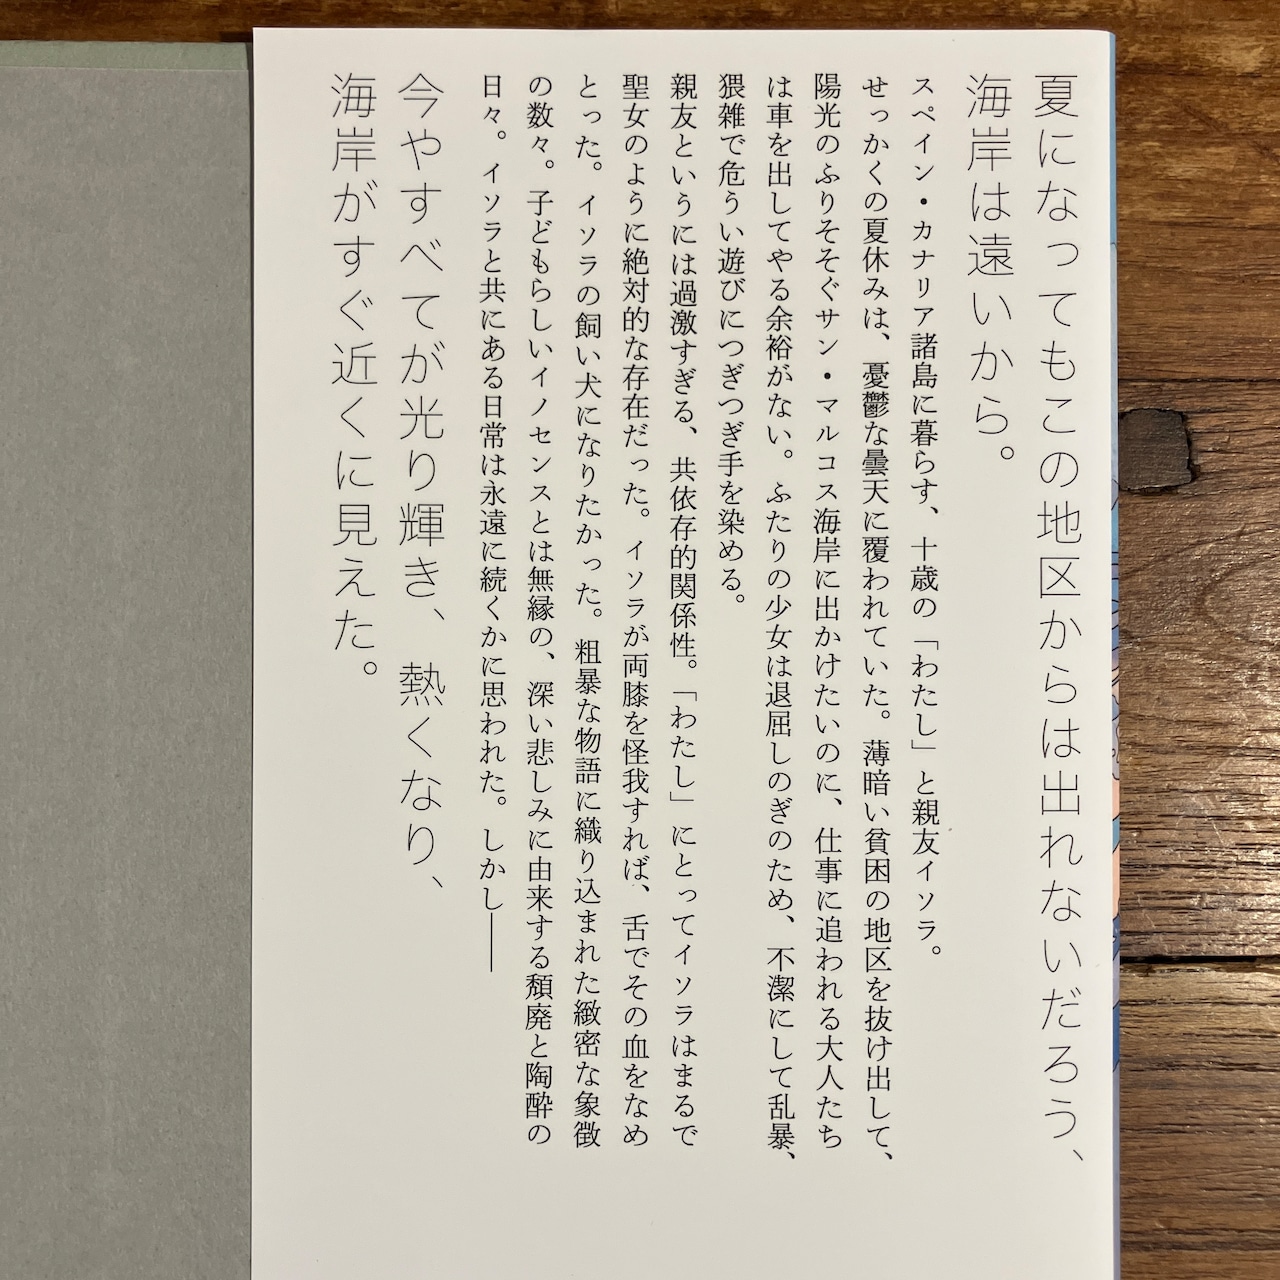 夏になってもこの地区からは出れないだろう、
海岸は遠いから。
スペイン・カナリア諸島に暮らす、十歳の「わたし」と親友イソラ。
せっかくの夏休みは、憂鬱な曇天に覆われていた。薄暗い貧困の地区を抜け出して、
陽光のふりそそぐサン・マルコス海岸に出かけたいのに、仕事に追われる大人たち
は車を出してやる余裕がない。ふたりの少女は退屈しのぎのため、不潔にして乱暴、
猥雑で危うい遊びにつぎつぎ手を染める。
親友というには過激すぎる、共依存的関係性。「わたし」にとってイソラはまるで
聖女のように絶対的な存在だった。イソラが両膝を怪我すれば、舌でその血をなめ
とった。イソラの飼い犬になりたかった。粗暴な物語に織り込まれた緻密な象徴
の数々。子どもらしいイノセンスとは無縁の、深い悲しみに由来する頽廃と陶酔の
日々。イソラと共にある日常は永遠に続くかに思われた。しかし――
今やすべてが光り輝き、熱くなり、
海岸がすぐ近くに見えた。